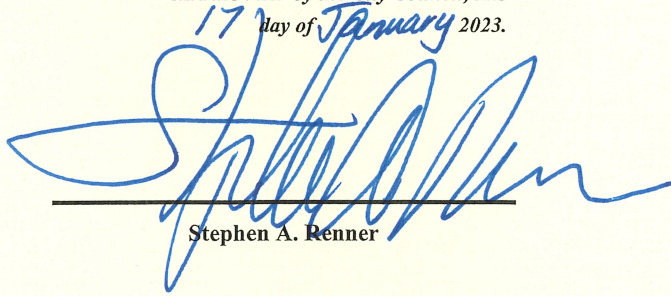 17 day of January 2023.
Stephen A. Renner